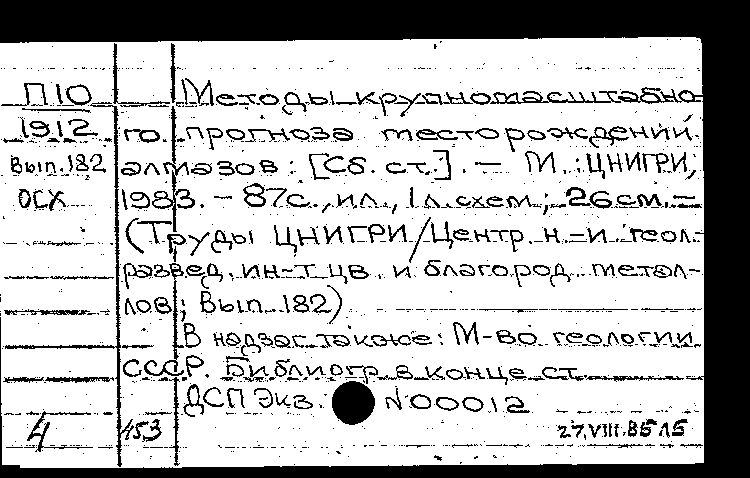 П10 Методы крупномасштабно-
1912 го прогноза месторождений
Вып.182 алмазов: [Сб. ст.]. — М.: ЦНИГРИ,
ОСХ 1983. — 87с., ил., 1л.схем; 26см.—
(Труды ЦНИГРИ/Центр. н.-и. геол.-
развед. ин-т цв. и благород. метал-
лов; Вып. 182)
В надзаг. также: М-во геологии
СССР. Библиогр. в конце ст.
ДСП Экз. №00012
4 453 27.VIII.85